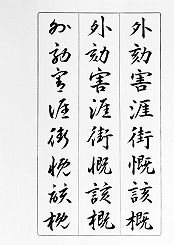 外劾害涯街慨該概
外劾害涯街慨該概
外劾害涯街慨該概